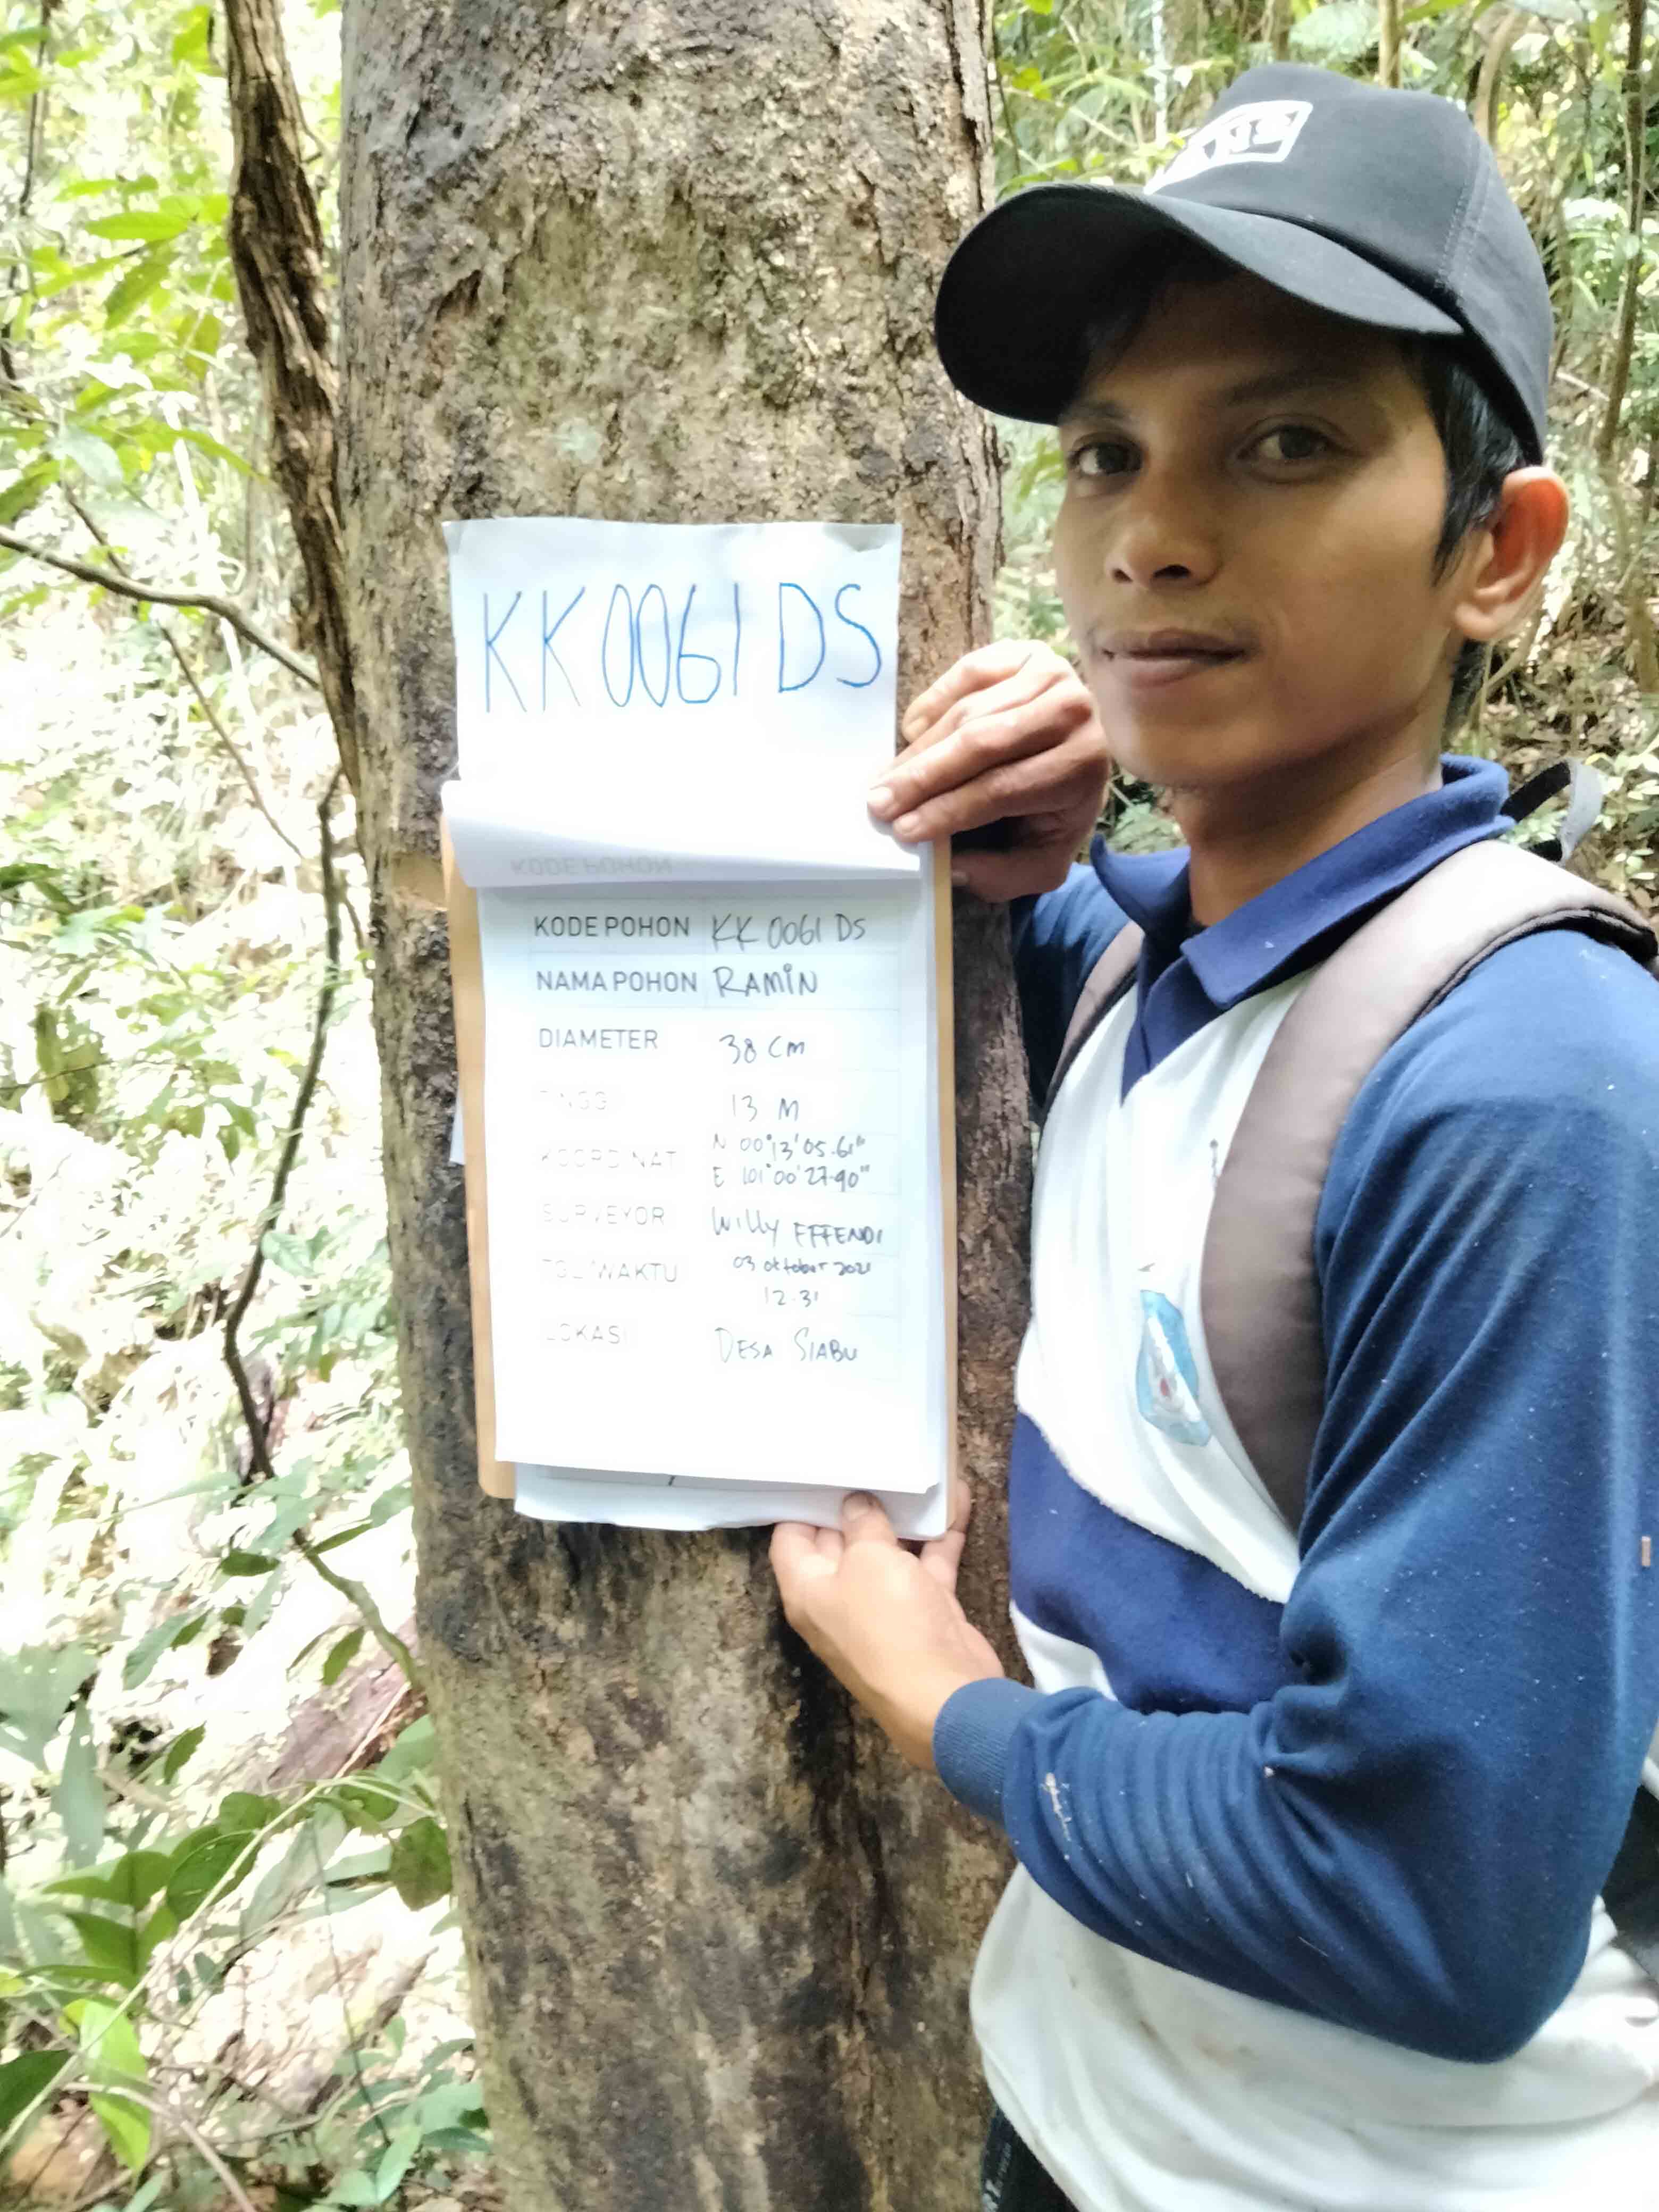 KK 0061 DS
KODE POHON KK 0061 DS
NAMA POHON RAMIN
DIAMETER 38 cm
TINGGI 13 M
KOORDINAT N 00°13'05.61"
E 101°00'27.90"
SURVEYOR Willy EFFENDI
TGL/WAKTU 03 oktober 2021
12.31
LOKASI DESA SIABU